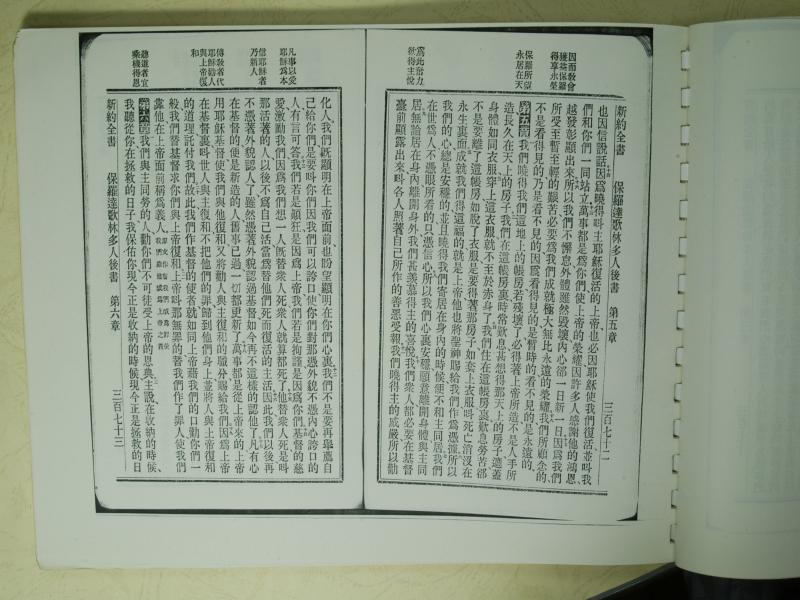 新約全書　保羅達歌林多人後書　第五章　三百七十二
因而教會
獲益保羅
得享永榮
保羅所望
永居在天
爲此奮力
欲得主悅
也因信說話因爲曉得叫主耶穌復活的上帝也必因耶穌使我們復活並叫我
們和你們一同站立萬事都是爲你們使上帝的榮耀因許多人感謝他的鴻恩
越發彰顯出來所以我們不懈怠外體雖然毀壞內心卻一日新一日因爲我們
所受至暫至輕的艱苦必要爲我們成就極大無比永遠的榮耀我們所顧念的
不是看得見的乃是看不見的因爲看得見的是暫時的看不見的是永遠的
第五章我們曉得我們這地上的帳房若殘壞了必得著上帝所造不是人手所
造長久在天上的房子我們在這帳房裏時常歎息甚想得那天上的房子遮蓋
身體如同衣服穿上這衣服就不至於赤身了我們住在這帳房裏歎息勞苦卻
不是要離了這帳房如脫了衣服是要得著那房子如套上衣服叫死亡消沒在
永生裏面成就我們得這福的就是上帝他也將聖神賜給我們作爲憑據所以
我們的心總是安穩的並且曉得我們寄居在身內的時候便不和主同居我們
在世爲人不憑眼所看的只憑信心所以我們心裏安穩願意離開身體與主同
居無論居在身內離開身外我們甚羨慕得主的喜悅我們衆人都必要在基督
臺前顯露出來叫各人照著自己所作的善惡受報我們曉得主的威嚴所以勸
凡事以愛
耶穌爲本
信耶穌者
乃新人
傳教者代
耶穌勸人
與上帝復
和
聽道者宜
乘機得恩
化人我們既顯明在上帝面前也盼望顯明在你們心裏我們不是要再舉薦自
己給你們是要叫你們因我們可以誇口使你們對那憑外貌不憑內心誇口的
人有言可答我們若是顛狂是因爲上帝我們若是拘謹是因爲你們基督的慈
愛激勵我們因爲我們想一人既替衆人死衆人就算都死了他替衆人死是叫
那活著的人以後不爲自己活當爲替他們死而復活的主活因此我們以後再
不憑著外貌認人了雖然憑著外貌認過基督如今再不這樣的認他了凡有心
在基督的便是新造的人舊事已過一切都更新了萬事都是從上帝來的上帝
用耶穌基督使我們與他復和又將勸人與主復和的職分賜給我們因爲上帝
在基督裏叫世人與主復和不把他們的罪歸到他們身上並將人與上帝復和
的道理託付我們故此我們作基督的使者就如同上帝藉我們的口勸你們一
般我們替基督求你們與上帝復和上帝叫那無罪的替我們作了罪人使我們
靠他在上帝面前稱爲義人
第六章我們與主同勞的人勸你們不可徒受上帝的恩典主說在收納的時候
我聽從你在拯救的日子我保佑你現今正是收納的時候現今正是拯救的日
新約全書　保羅達歌林多人後書　第六章　三百七十三